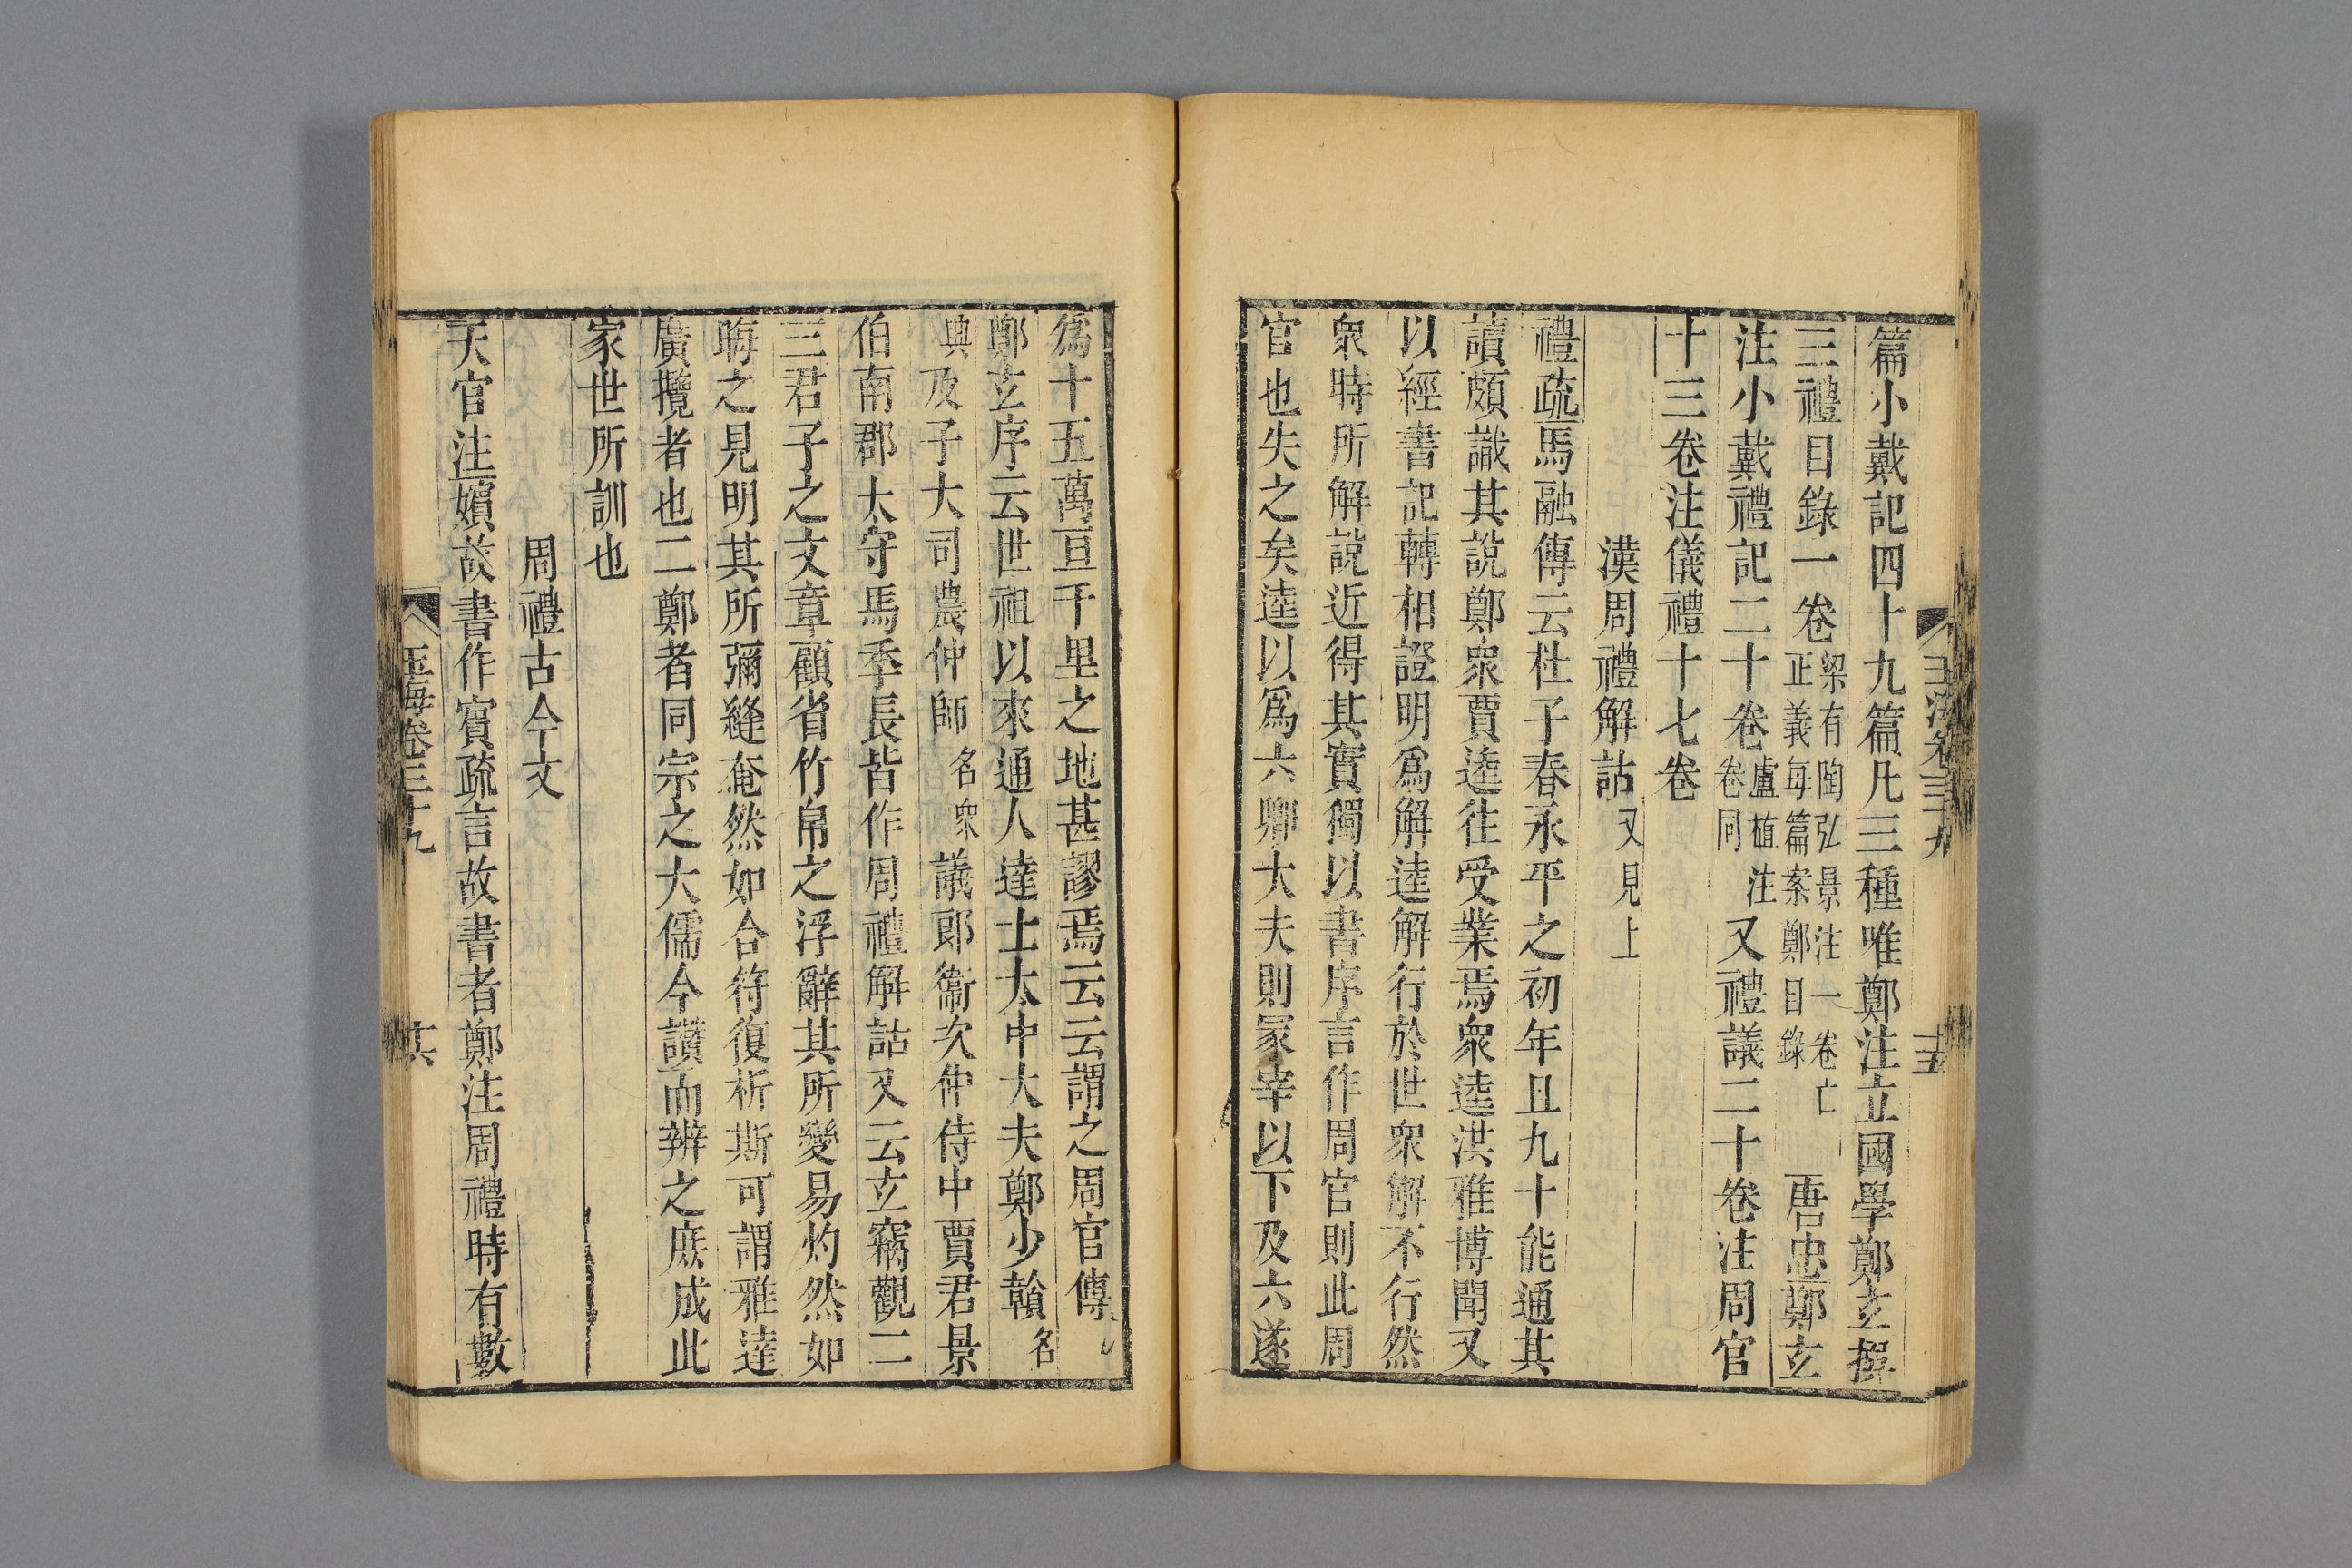 玉海卷三十九　十五
篇小戴記四十九篇凡三種唯鄭注立國學鄭玄撰
三禮目錄一卷梁有陶弘景注一卷亡正義每篇案鄭目錄唐忠鄭玄
注小戴禮記二十卷盧植注卷同又禮議二十卷注周官
十三卷注儀禮十七卷
漢周禮解詁又見上
禮疏馬融傳云杜子春永平之初年且九十能通其
讀頗識其說鄭衆賈逵往受業焉衆逵洪雅博聞又
以經書記轉相證明爲解逵解行於世衆解不行然
衆時所解說近得其實獨以書序言作周官則此周
官也失之矣逵以爲六卿大夫則冢宰以下及六遂
爲十五萬亘千里之地甚謬焉云云謂之周官傳
鄭玄序云世祖以來通人達士太中大夫鄭少贛名
興及子大司農仲師名衆議郎衞次仲侍中賈君景
伯南郡太守馬季長皆作周禮解詁又云玄竊觀二
三君子之文章顧省竹帛之浮辭其所變易灼然如
晦之見明其所彌縫奄然如合符復析斯可謂雅達
廣攬者也二鄭者同宗之大儒今讚而辨之庶成此
家世所訓也
周禮古今文
天官注嬪故書作賓疏言故書者鄭注周禮時有數
玉海卷三十九　其